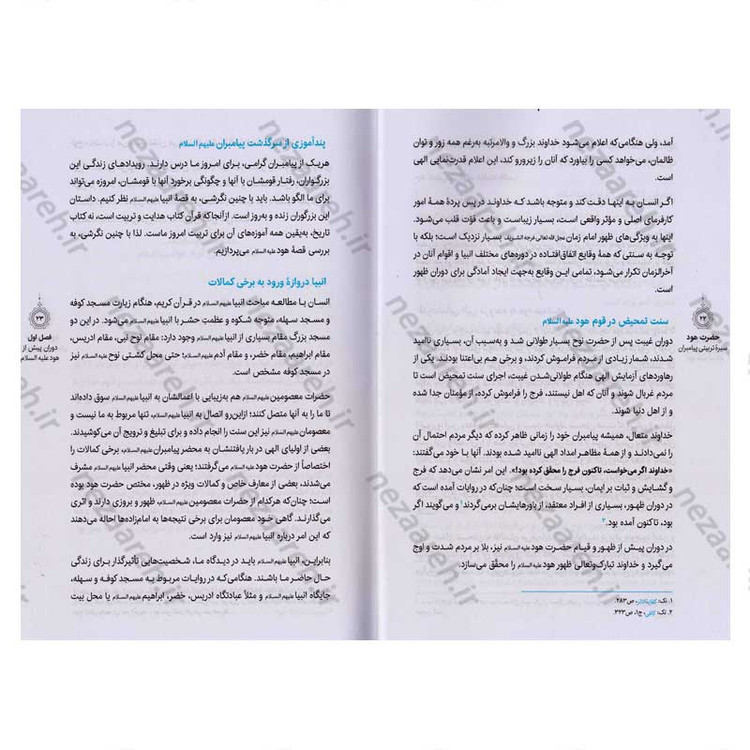 آمد، ولی هنگامی‌که اعلام می‌شود خداوند بزرگ و والامرتبه به‌رغم همه زور و توان
ظالمان، می‌خواهد کسی را بیاورد که آنان را زیرورو کند، این اعلام قدرت‌نمایی الهی
است.
اگر انسان به اینها دقت کند و متوجه باشد که خداوند در پس پردۀ همۀ امور
کارفرمای اصلی و مؤثر واقعی است، بسیار زیباست و باعث قوّت قلب می‌شود.
اینها به ویژگی‌های ظهور امام زمان عجل الله تعالی فرجه الشریف بسیار نزدیک است؛ بلکه با
توجه به سنتی که همۀ وقایع اتفاق‌افتاده در دوره‌های مختلف انبیا و اقوام آنان در
آخرالزمان تکرار می‌شود، تمامی این وقایع به‌جهت ایجاد آمادگی برای دوران ظهور
است.
سنت تمحیض در قوم هود علیه السلام
دوران غیبت پس از حضرت نوح بسیار طولانی شد و به‌سبب آن، بسیاری ناامید
شدند، شمار زیادی از مردم فراموش کردند، و برخی هم بی‌اعتنا بودند. یکی از
رهاوردهای آزمایش الهی هنگام طولانی‌شدن غیبت، اجرای سنت تمحیض است تا
مردم غربال شوند و آنان که اهل نیستند، فرج را فراموش کرده، از مؤمنان جدا شده
و از اهل دنیا شوند.
خداوند متعال، همیشه پیامبران خود را زمانی ظاهر کرده که دیگر مردم احتمال آن
را نمی‌دادند و از همۀ مظاهر امداد الهی ناامید شده بودند. آنها با خود می‌گفتند:
«خداوند اگر می‌خواست، تاکنون فرج را محقق کرده بود!». این امر نشان می‌دهد که فرج
و گشایش و ثبات بر ایمان، بسیار سخت است؛ چنان‌که در روایات آمده است که
در دوران ظهور، بسیاری از افراد معتقد، از باورهایشان برمی‌گردند۱ و می‌گویند اگر
بود، تاکنون آمده بود.۲
در دوران پیش از ظهور و قیام حضرت هود علیه السلام نیز، بلا بر مردم شدت و اوج
می‌گیرد و خداوند تبارک‌وتعالی ظهور هود علیه السلام را محقّق می‌سازد.
۱. نک: ص۲۸۳.
۲. نک: کافی، ج۱، ص۳۳۳.
۲۲
حضرت هود
سیرۀ تربیتی پیامبران
پندآموزی از سرگذشت پیامبران علیهم السلام
هریک از پیامبران گرامی، برای امروز ما درس دارند. رویدادهای زندگی این
بزرگواران، رفتار قومشان با آنها و چگونگی برخورد آنها با قومشان، امروزه می‌تواند
برای ما الگو باشد. باید با چنین نگرشی، به قصۀ انبیا علیهم السلام نظر کنیم. داستان
این بزرگواران زنده و به‌روز است. ازآنجاکه قرآن کتاب هدایت و تربیت است، نه کتاب
تاریخ، به‌یقین همه آموزه‌های آن برای تربیت امروز ماست. لذا با چنین نگرشی، به
بررسی قصۀ هود علیه السلام می‌پردازیم.
انبیا دروازۀ ورود به برخی کمالات
انسان با مطالعه مباحث انبیا علیهم السلام در قرآن کریم، هنگام زیارت مسجد کوفه
و مسجد سهله، متوجه شکوه و عظمتِ حشر با انبیا علیهم السلام می‌شود. در این دو
مسجد بزرگ مقام بسیاری از انبیا علیهم السلام وجود دارد: مقام نوح نبی، مقام ادریس،
مقام ابراهیم، مقام خضر، و مقام آدم علیهم السلام؛ حتی محل کشتی نوح علیه السلام نیز
در مسجد کوفه مشخص است.
حضرات معصومین علیهم السلام هم به‌زیبایی با اعمالشان به انبیا علیهم السلام سوق داده‌اند
تا ما را به آنها متصل کنند؛ ازاین‌رو اتصال به انبیا علیهم السلام، تنها مربوط به ما نیست و
معصومان علیهم السلام نیز این سنت را انجام داده و برای تبلیغ و ترویج آن می‌کوشیدند.
بعضی از اولیای الهی در بار یافتنشان به محضر پیامبران علیهم السلام، برخی کمالات را
اختصاصاً از حضرت هود علیه السلام می‌گرفتند؛ یعنی وقتی محضر انبیا علیهم السلام مشرف
می‌شدند، بعضی از معارف خاص و کمالات ویژه در ظهور، مختص حضرت هود بوده
است؛ چنان‌که هرکدام از حضرات معصومین علیهم السلام، ظهور و بروزی دارند و اثری
می‌گذارند. گاهی خود معصومان برای برخی نتیجه‌ها به امامزاده‌ها احاله می‌دهند
که این امر درباره انبیا علیهم السلام نیز وارد است.
بنابراین، انبیا علیهم السلام باید در دیدگاه ما، شخصیت‌هایی تأثیرگذار برای زندگی
حال حاضر ما باشند. هنگامی‌که در روایات مربوط به مسجد کوفه و سهله،
جایگاه انبیا علیهم السلام و مثلاً عبادتگاه ادریس، خضر، ابراهیم علیهم السلام یا محل بیت
۲۳
فصل اول
دوران پیش از
هود علیه السلام
nezaareh.ir